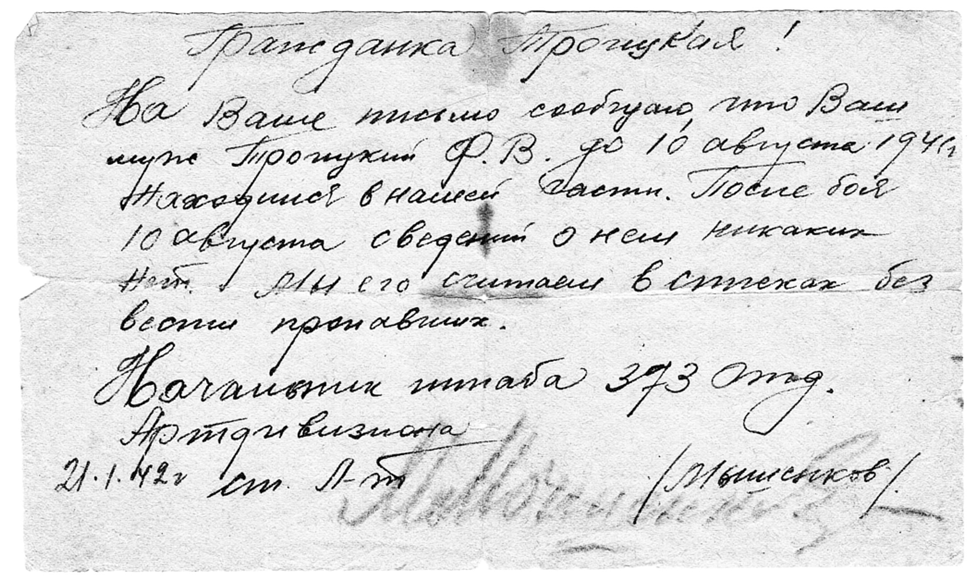 Гражданка Троицкая!
На Ваше письмо сообщаю, что Ваш
муж Троицкий Ф.В. до 10 августа 1941г
находился в нашей части. После боя
10 августа сведений о нем никаких
нет. Мы его считаем в списках без
вести пропавших.
Начальник штаба 373 отд.
Артдивизиона
21.1.42г ст. Л-т /Мышенков/.